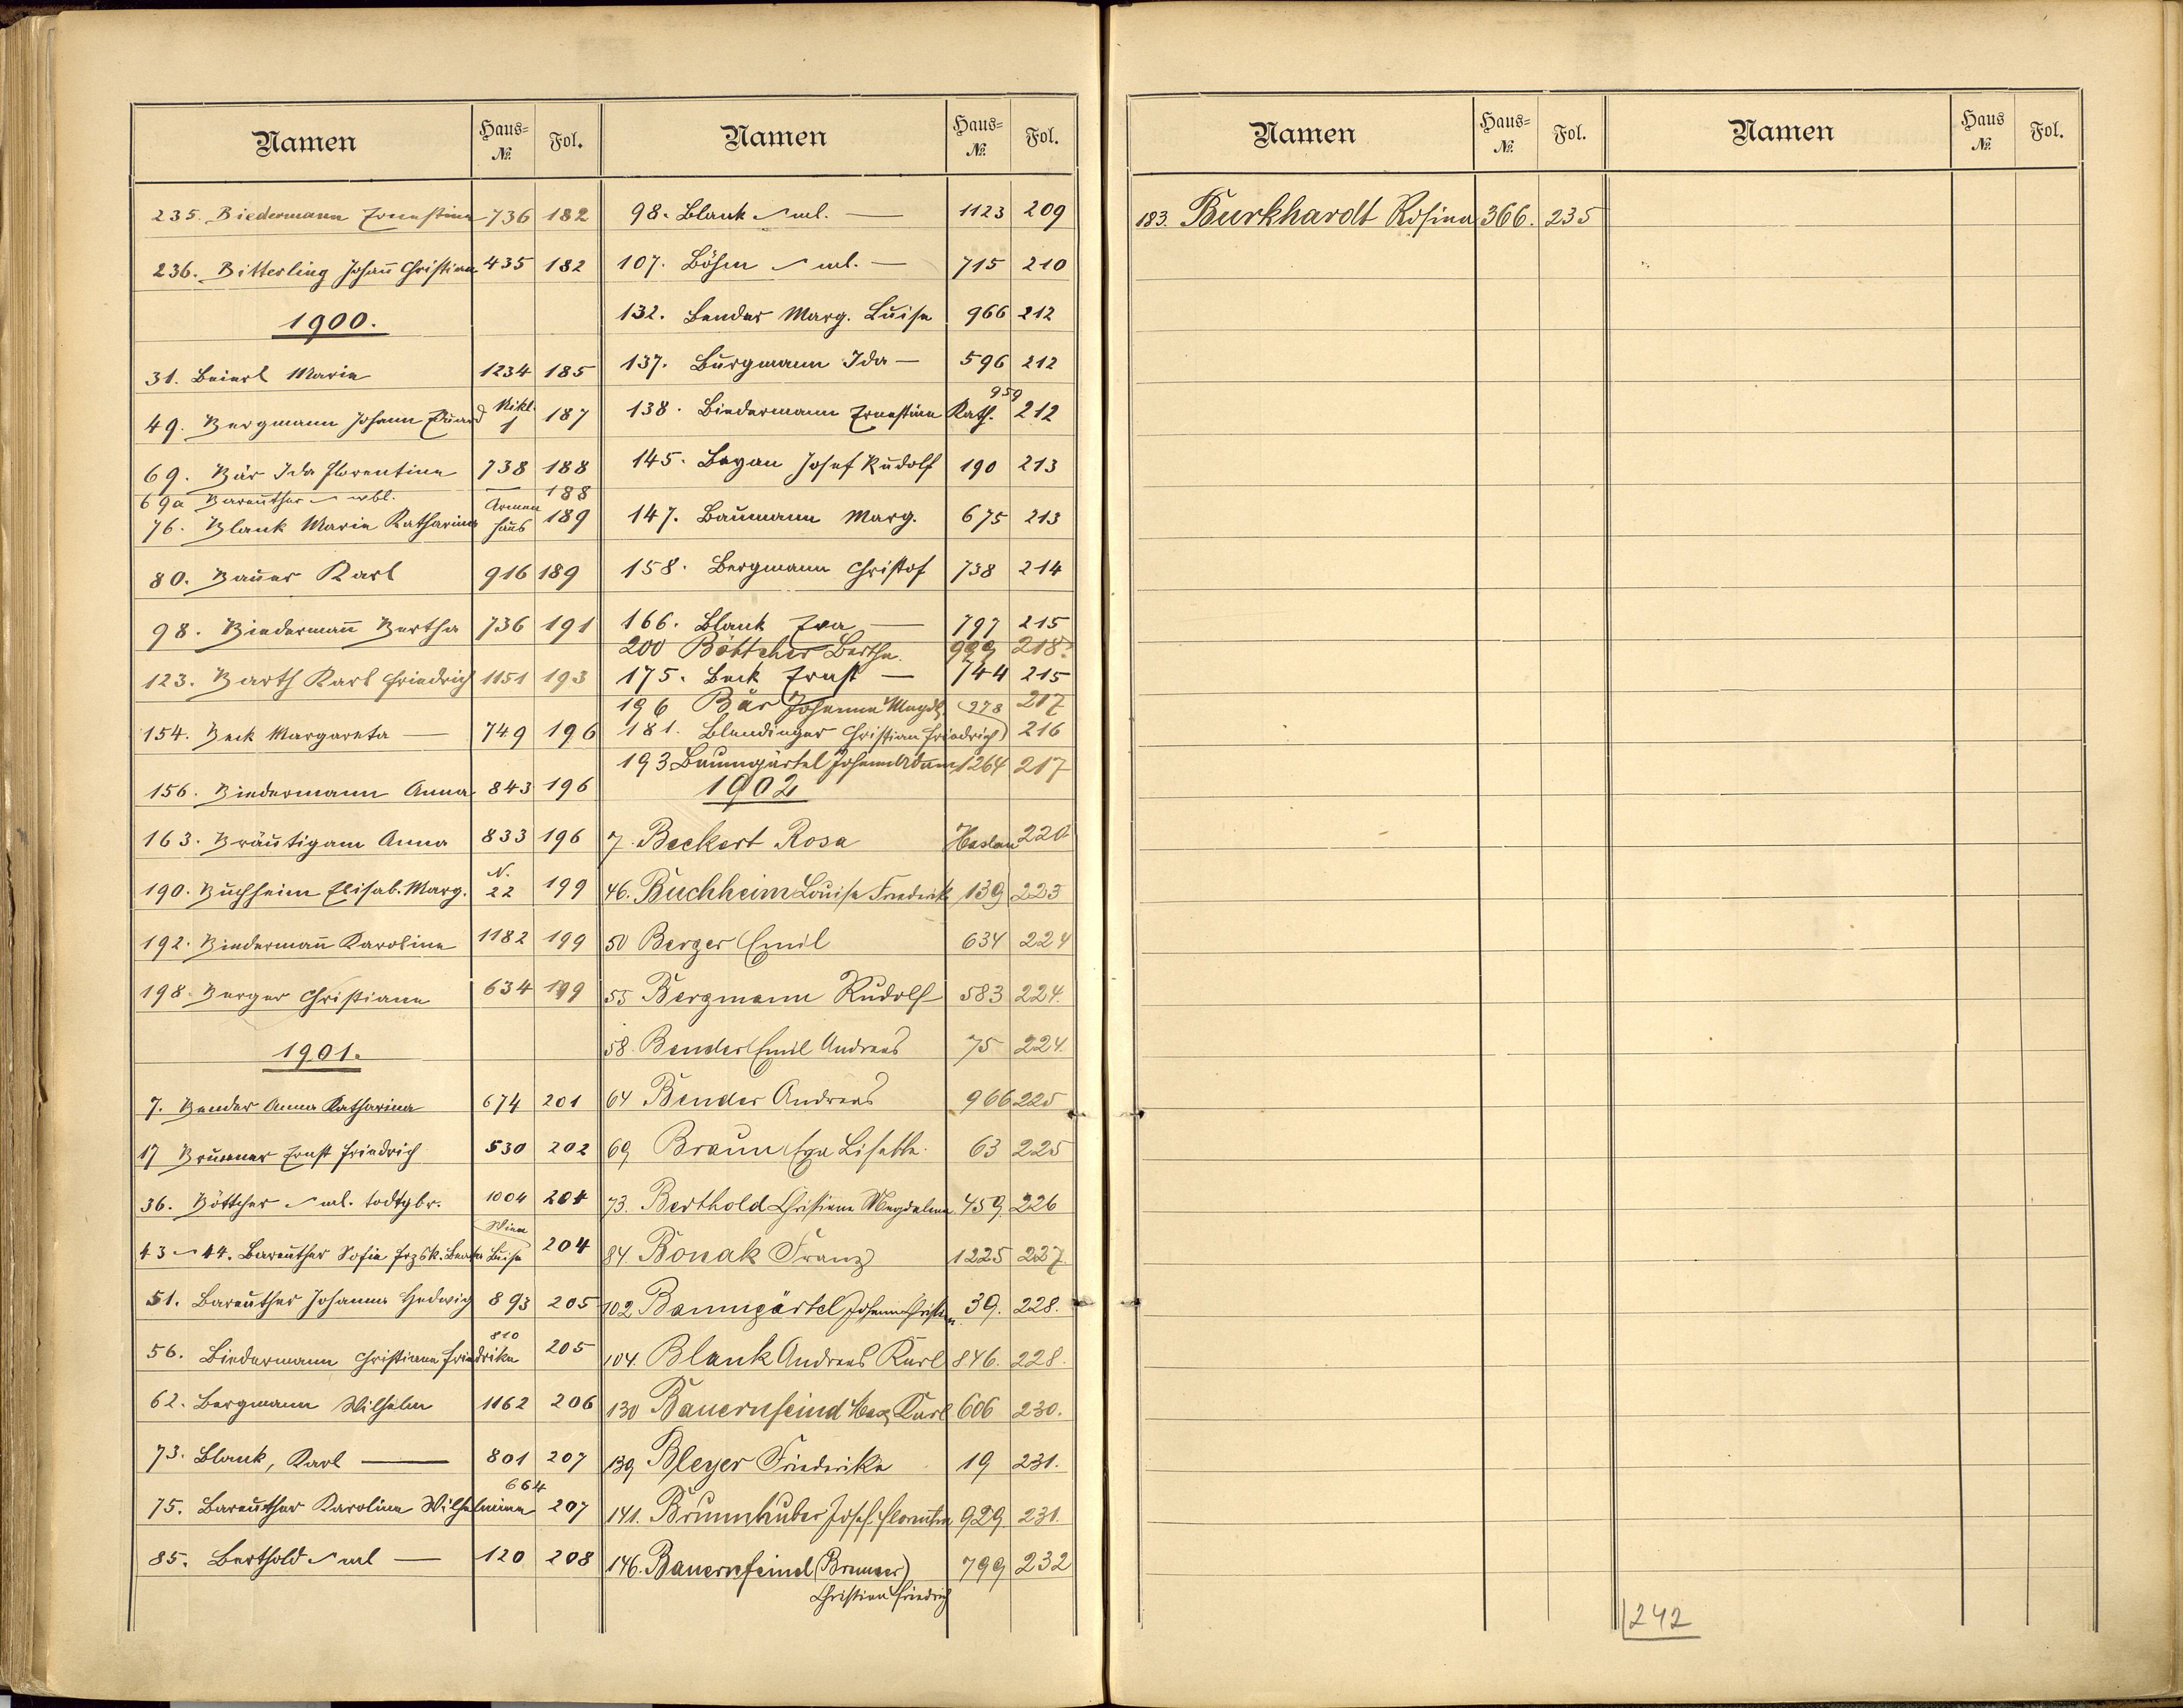 Namen Haus-No. Fol.
235. Biedermann Ernestine 736 182
236. Bitterling Johañ Christian 435 182
1900.
31. Beierl Marie 1234 185
49. Bergmann Johann Eduard Nikl. 1 187
69. Bär Ida Florentine 738 188
69a Bareuther wbl. — 188
76. Blank Maria Katharina Armenhaus 189
80. Bauer Karl 916 189
98. Biedermañ Bertha 736 191
123. Barth Karl Friedrich 1151 193
154. Beck Margareta — 749 196
156. Biedermann Anna 843 196
163. Bräutigam Anna 833 196
190. Buchheim Elisab. Marg. N. 22 199
192. Biedermañ Karoline 1182 199
198. Berger Christiane 634 199
1901.
7. Bender Anna Katharina 674 201
17 Brunner Ernst Friedrich 530 202
36. Böttcher ml. todtgbr. 1004 204
43 44. Bareuther Sofie Luise Wien 204
51. Bareuther Johanna Hedwig 893 205
56. Biedermann Christiane Friedrike 810 205
62. Bergmann Wilhelm 1162 206
73. Blank, Karl — 801 207
75. Bareuther Karoline Wilhelmine 664 207
85. Berthold ml — 120 208
Namen Haus-No. Fol.
98. Blank ml. — 1123 209
107. Böhm ml. — 715 210
132. Bender Marg. Luise 966 212
137. Burgmann Ida — 596 212
138. Biedermann Ernestine Kath. 959 212
145. Beyan Josef Rudolf 190 213
147. Baumann Marg. 675 213
158. Bergmann Christof 738 214
166. Blank Eva — 797 215
200 Böttcher Bertha. 999 218
175. Beck Ernst — 744 215
196 Bär Johanna Magdl. 278 217
181. Blendinger Christian Friedrich 216
193 Baumgärtel Johann Adam 1264 217
1902
7. Beckert Rosa Haslau 220
46. Buchheim Louise Frederike 139 223
50 Berger Emil 634 224
55 Bergmann Rudolf 583 224.
58. Bender Emil Andreas 75 224.
64 Bender Andreas 966 225
69 Braun Eva Lisette. 63 225
73. Berthold Christiane Magdalena 459. 226
84. Bonak Franz 1225 227.
102 Baumgärtel Johann Christian 39. 228.
104. Blank Andreas Karl 846. 228.
130 Bauernfeind Max Karl 606 230.
139 Bleyer Friederike 19 231.
141. Brunnhuber Josef Florentin 929 231.
146. Bauernfeind (Brunner) 799 232
Christian Friedrich
Namen Haus-No. Fol. Namen Haus No. Fol.
183. Burkhardt Rosina 366. 235
242